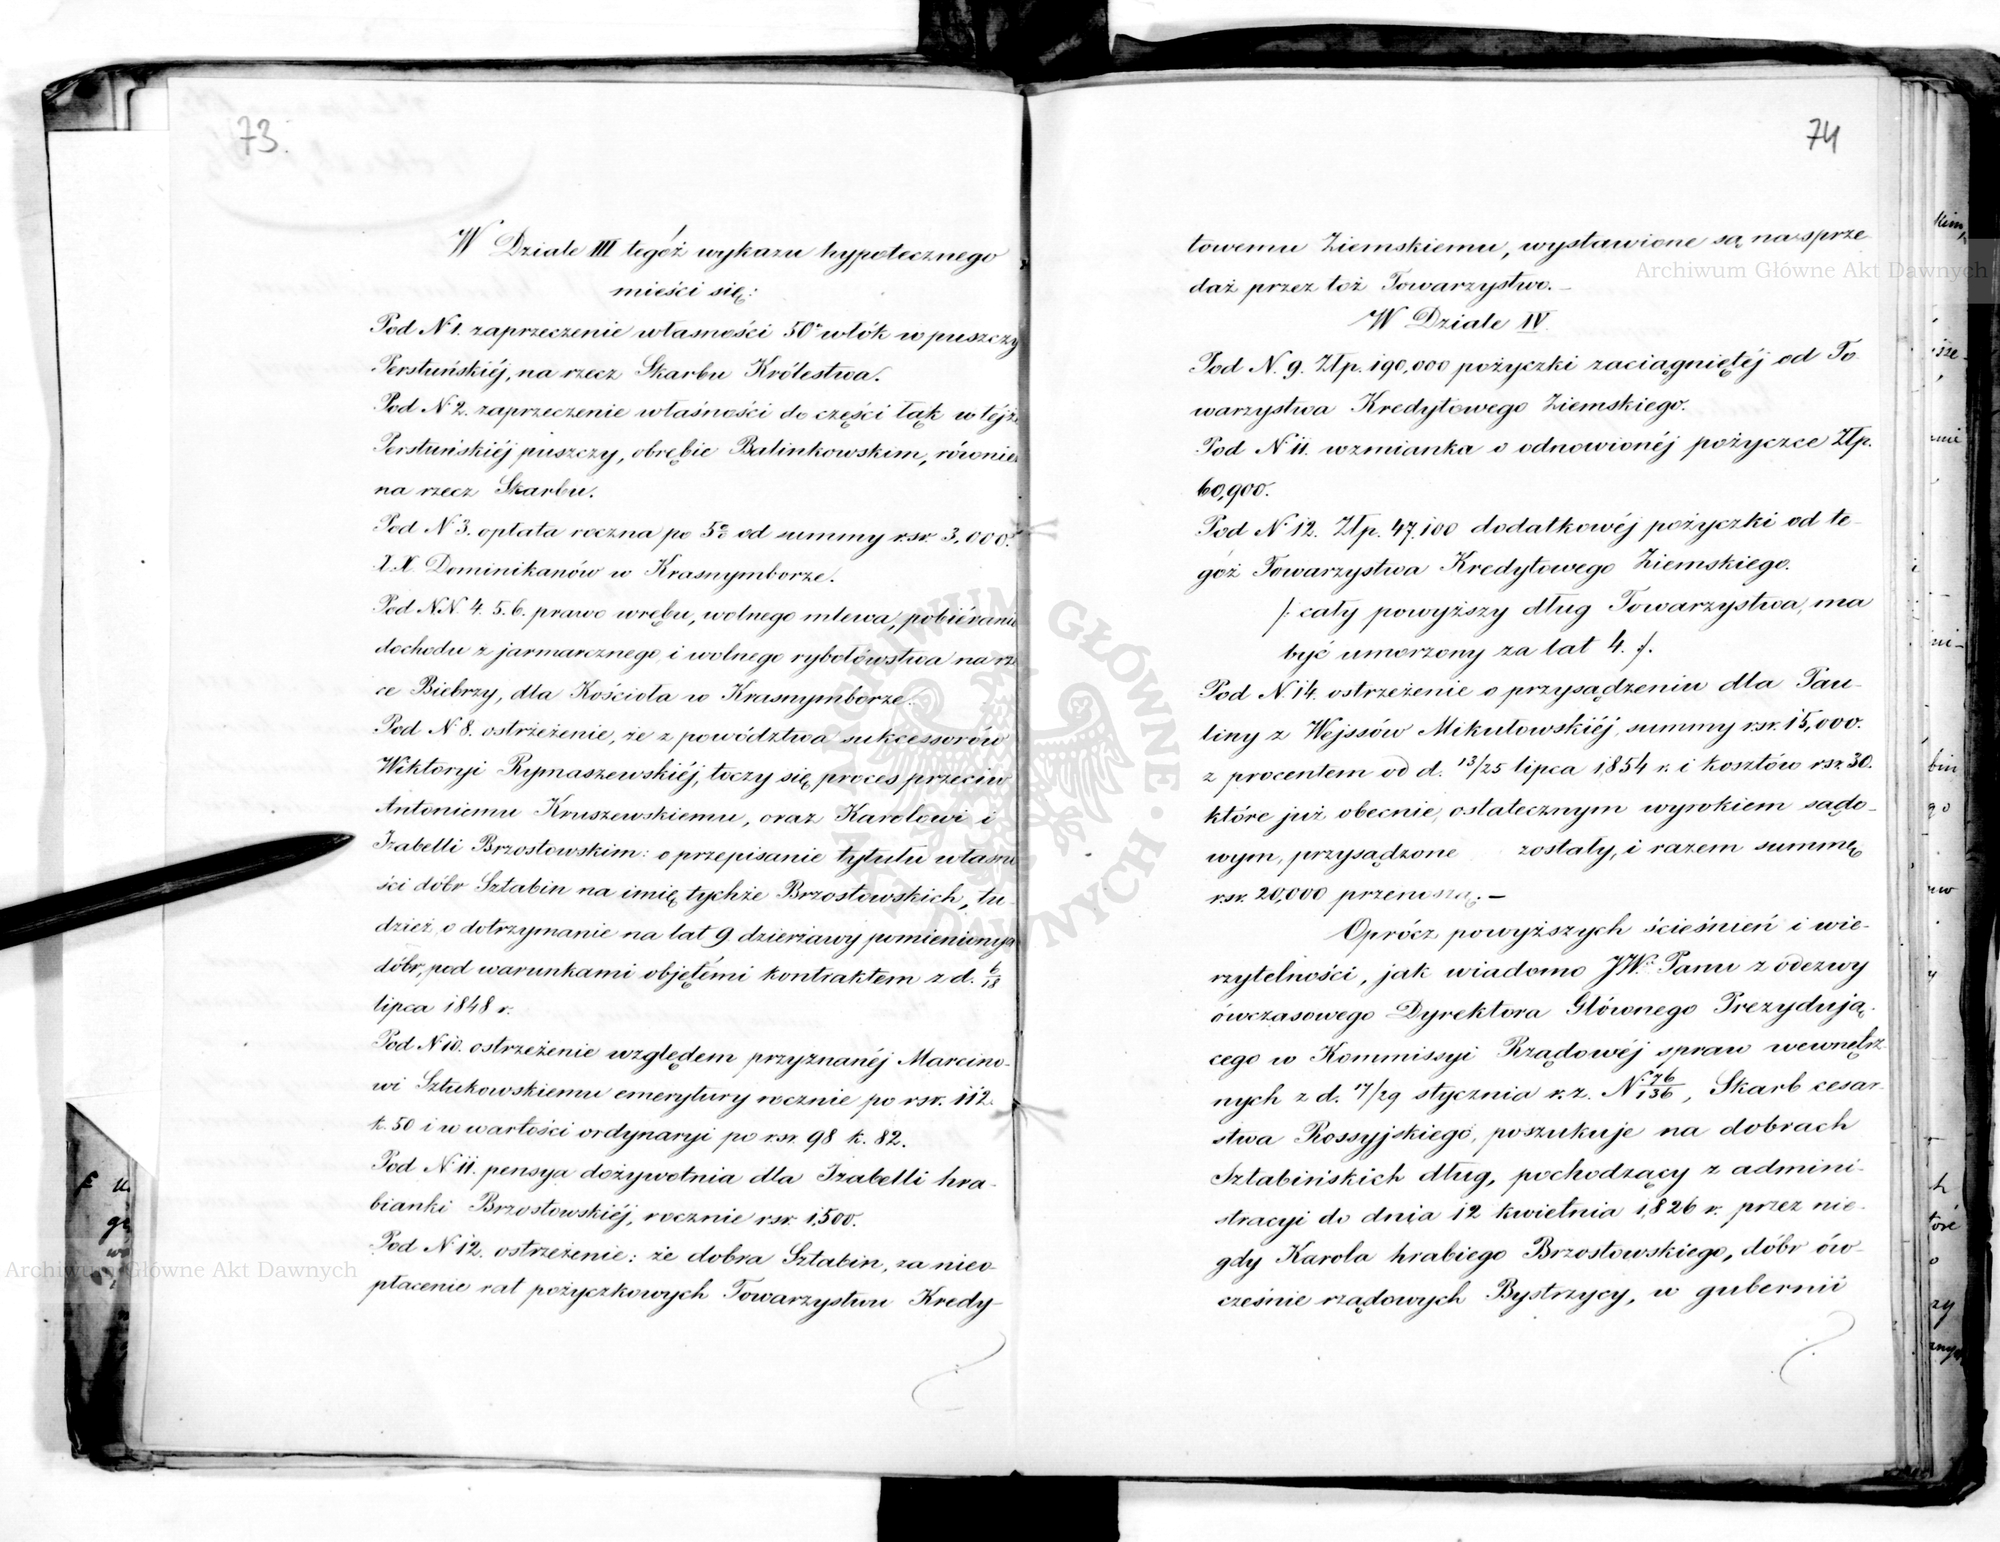 73.
W Dziale III tegóż wykazu hypotecznego
mieści się:
Pod N 1. zaprzeczenie własności 50 włók w puszczy
Perstuńskiéj, na rzecz Skarbu Królestwa.
Pod N 2. zaprzeczenie właśności do części łąk w téjże
Perstuńskiéj puszczy, obrębie Balinkowskim, równie
na rzecz Skarbu.
Pod N 3. opłata roczna po 5% od summy rsr. 3,000.
X.X. Dominikanów w Krasnymborze.
Pod NN. 4. 5. 6. prawo wrębu, wolnego mlewa, pobiérania
dochodu z jarmarcznego, i wolnego rybołówstwa na rz
ce Biebrzy, dla Kościoła w Krasnymborze.
Pod N 8. ostrzeżenie, że z powództwa sukcessorów
Wiktoryi Rymaszewskiéj, toczy się proces przeciw
Antoniemu Kruszewskiemu, oraz Karolowi i
Izabelli Brzostowskim: o przepisanie tytułu własno
ści dóbr Sztabin na imię tychże Brzostowskich, tu
dzież o dotrzymanie na lat 9 dzierżawy pomienionych
dóbr, pod warunkami objętémi kontraktem z d. 6/18
lipca 1848 r.
Pod N 10. ostrzeżenie względem przyznanéj Marcino-
wi Sztukowskiemu emerytury rocznie po rsr. 112.
k. 50 i w wartości ordynaryi po rsr. 98 k. 82.
Pod N 11. pensya dożywotnia dla Izabelli hra-
bianki Brzostowskiéj, rocznie rsr. 1,500.
Pod N 12. ostrzeżenie: że dobra Sztabin, za nieo-
płacenie rat pożyczkowych Towarzystwu Kredy-
74
towemu Ziemskiemu, wystawione są na sprze
daż przez toż Towarzystwo.-
W Dziale IV.
Pod N. 9. Złp. 190,000 pożyczki zaciągniętéj od To
warzystwa Kredytowego Ziemskiego.
Pod N 11. wzmianka o odnowionéj pożyczce Złp.
60,900.
Pod N 12. Złp. 47,100 dodatkowéj pożyczki od te-
góż Towarzystwa Kredytowego Ziemskiego.
/: cały powyższy dług Towarzystwa, ma
być umorzony za lat 4. :/.
Pod N. 14. ostrzeżenie o przysądzeniu dla Pau-
liny z Wejssów Mikułowskiéj, summy rsr. 15,000.
z procentem od d. 13/25 lipca 1854 r. i kosztów rsr. 30.
które już obecnie, ostatecznym wyrokiem sądo-
wym, przysądzone zostały, i razem summę
rsr. 20,000 przenoszą.-
Oprócz powyższych ścieśnień i wie-
rzytelności, jak wiadomo JW. Panu z odezwy
ówczasowego Dyrektora Głównego Prezydują-
cego w Kommissyi Rządowéj spraw wewnętrz
nych z d. 17/29 stycznia r.z. N 176/136, Skarb cesar-
stwa Rossyjskiego, poszukuje na dobrach
Sztabińskich dług, pochodzący z admini-
stracyi do dnia 12 kwietnia 1826 r. przez nie-
gdy Karola hrabiego Brzostowskiego, dóbr ów-
cześnie rządowych Bystrzycy, w gubernii
Archiwum Główne Akt Dawnych
Archiwum Główne Akt Dawnych
ARCHIWUM GŁÓWNE AKT DAWNYCH